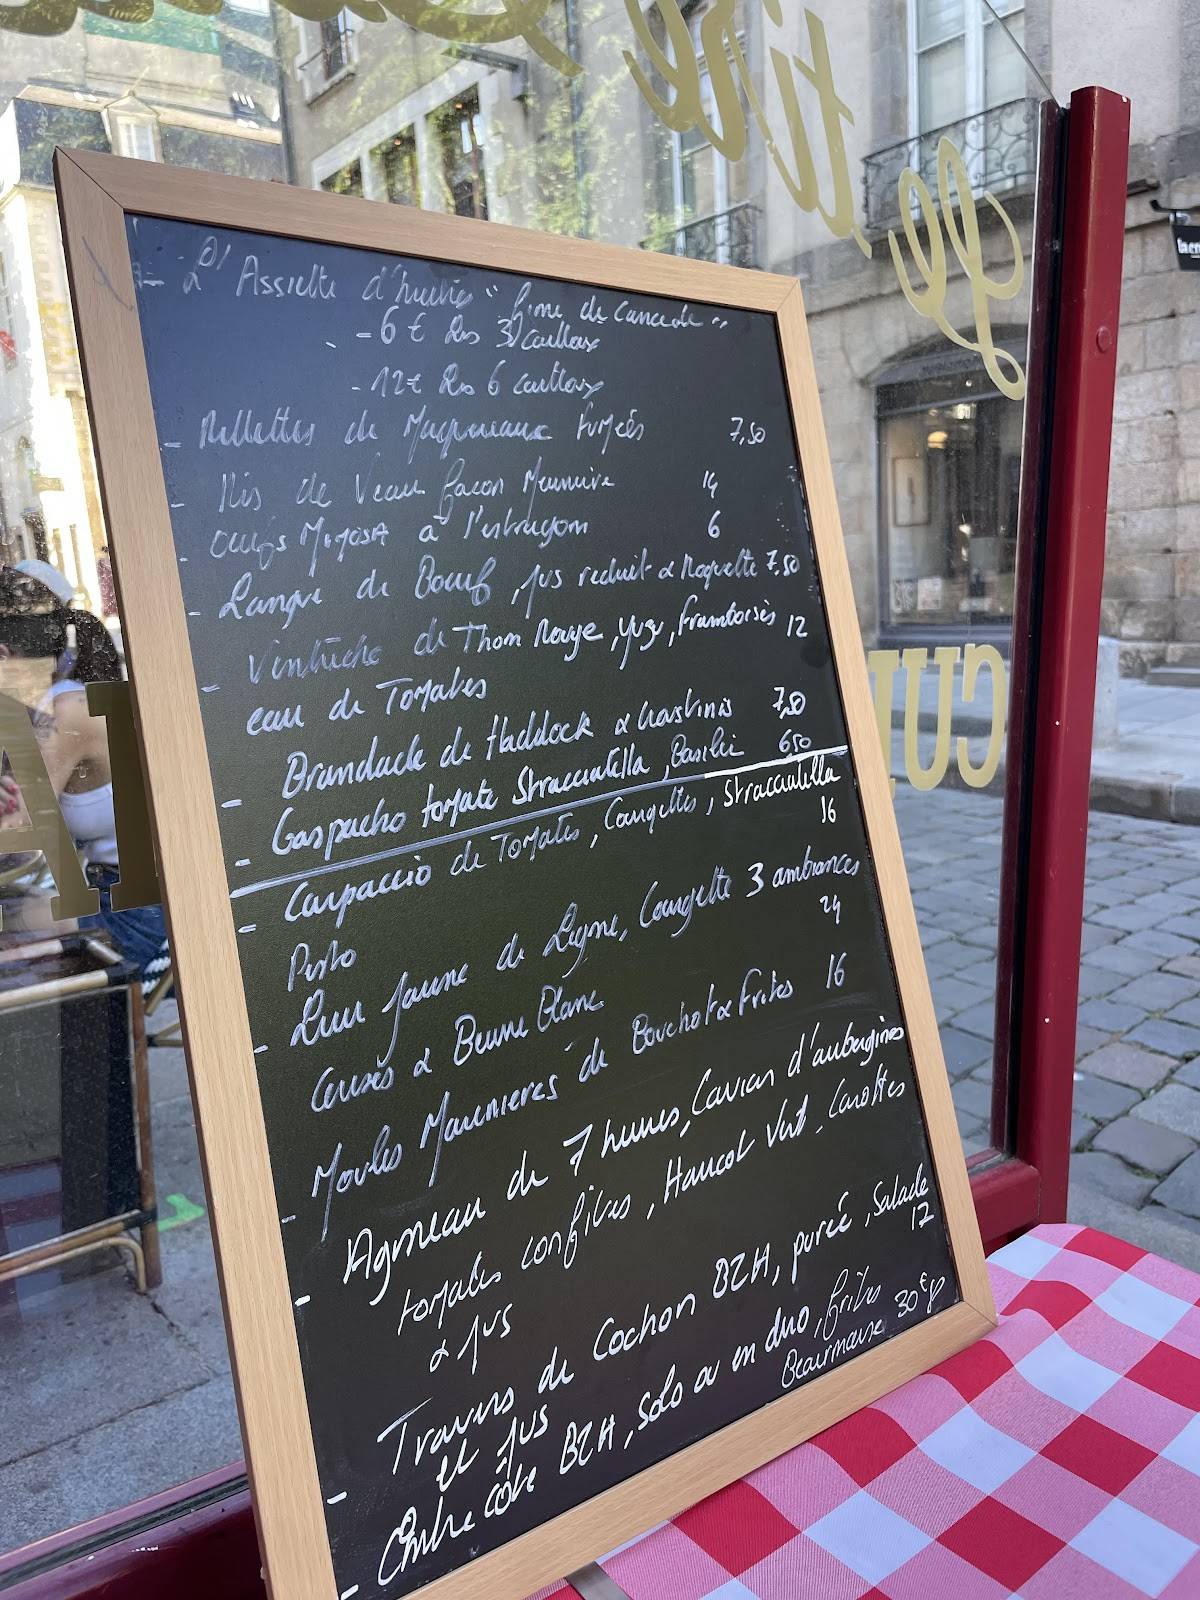 - L'Assiette d'huîtres "fine de Cancale"
- 6 € les 3 cailloux
- 12€ les 6 cailloux
- Rillettes de Maquereaux fumées 7,50
- Ris de Veau façon Meunière 14
- Oeufs Mimosa à l'estragon 6
- Langue de Boeuf, jus reduit & Roquette 7,50
- Ventrèche de Thon Rouge, yuzu, framboises 12
eau de Tomates
- Brandade de Haddock & 7,50
- Gaspacho tomate Stracciatella, Basilic 650
- Carpaccio de Tomates, Courgettes, Stracciatella
Pesto 16
- Lieu jaune de Ligne, Courgette 3 ambiances
& Beurre Blanc 24
- Moules Marinieres de Bouchot & frites 16
- Agneau de 7 heures, Caviar d'aubergines
tomates confites, Haricot Vert, Carottes
& jus
- Travers de Cochon BZH, purée, Salade
et jus 12
- Entrecôte BZH, solo ou en duo, frites
Bearnaise 30€